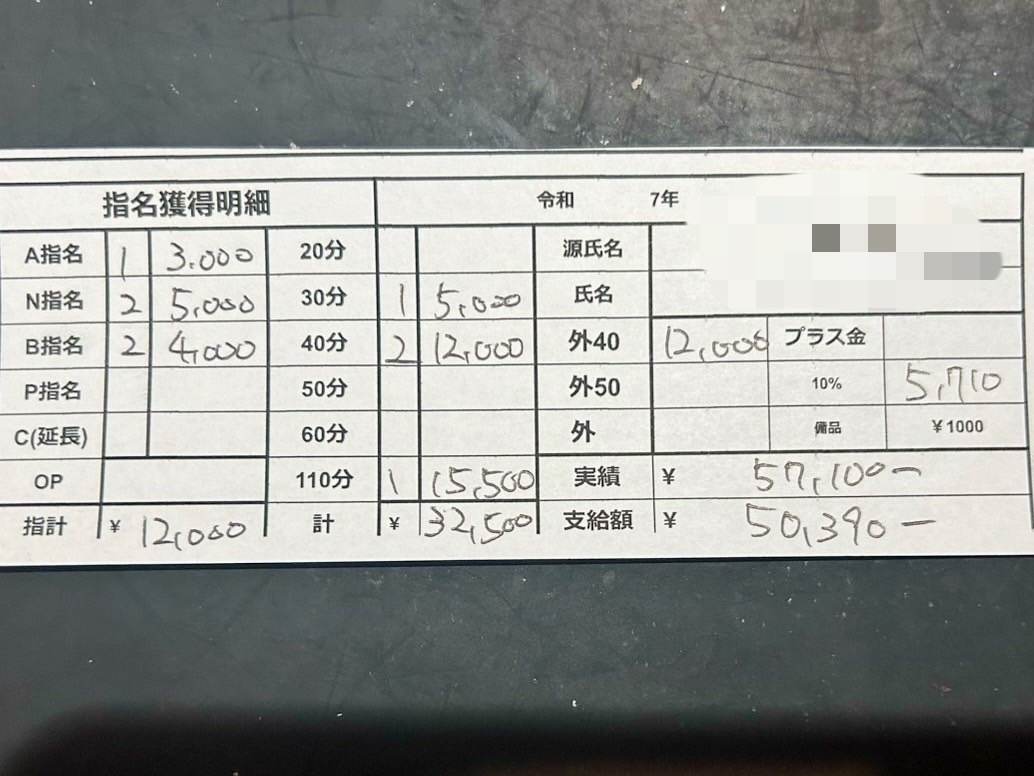 指名獲得明細 令和 7年
A指名 1 3.000 20分 源氏名
N指名 2 5,000 30分 1 5,000 氏名
B指名 2 4,000 40分 2 12,000 外40 12,000 プラス金
P指名 50分 外50 10% 5,710
C(延長) 60分 外 備品 ¥1000
OP 110分 1 15,500 実績 ¥ 57,100-
指計 ¥ 12,000 計 ¥ 32,500 支給額 ¥ 50,390-